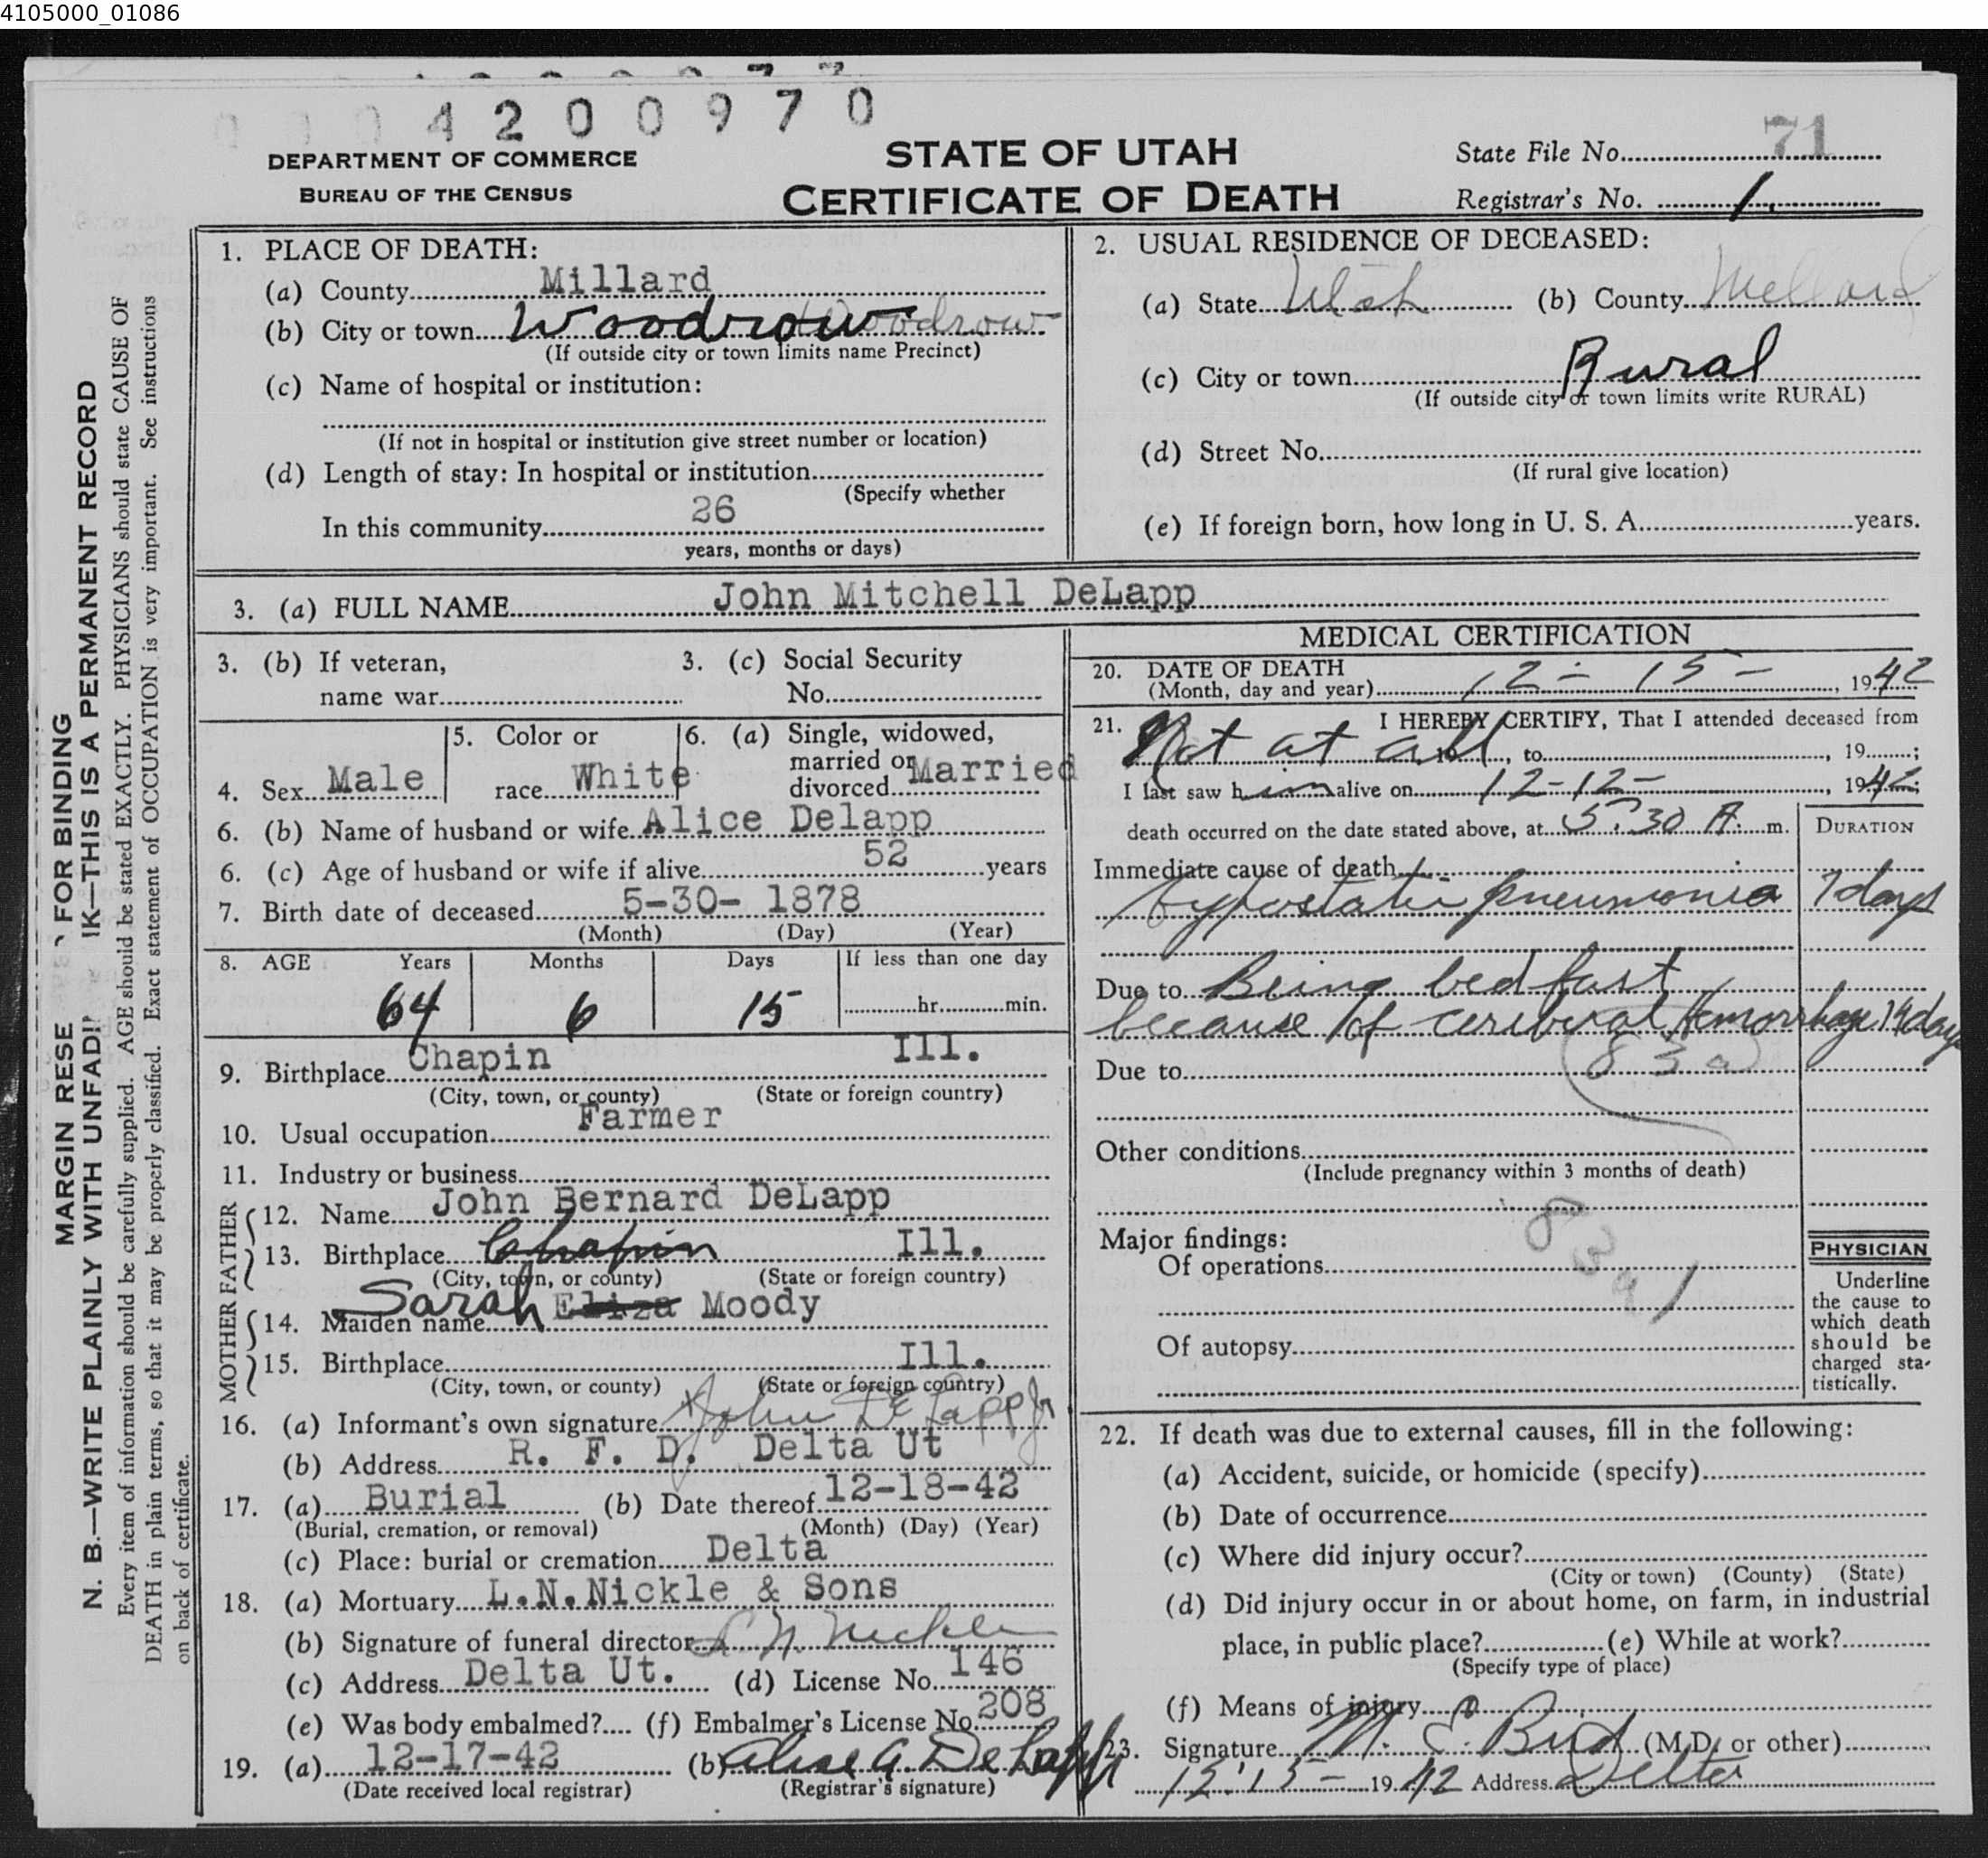 4105000_01086
0 1 0 4 2 0 0 9 7 0
DEPARTMENT OF COMMERCE
BUREAU OF THE CENSUS
STATE OF UTAH
CERTIFICATE OF DEATH
State File No. 71
Registrar's No. 1
MARGIN RESE FOR BINDING
N. B.—WRITE PLAINLY WITH UNFADI IK—THIS IS A PERMANENT RECORD
Every item of information should be carefully supplied. AGE should be stated EXACTLY. PHYSICIANS should state CAUSE OF
DEATH in plain terms, so that it may be properly classified. Exact statement of OCCUPATION is very important. See instructions
on back of certificate.
1. PLACE OF DEATH:
(a) County Millard
(b) City or town Woodrow Woodrow
(If outside city or town limits name Precinct)
(c) Name of hospital or institution:
(If not in hospital or institution give street number or location)
(d) Length of stay: In hospital or institution
(Specify whether
In this community 26
years, months or days)
2. USUAL RESIDENCE OF DECEASED:
(a) State Utah (b) County Millard
(c) City or town Rural
(If outside city or town limits write RURAL)
(d) Street No.
(If rural give location)
(e) If foreign born, how long in U. S. A. years.
3. (a) FULL NAME John Mitchell DeLapp
3. (b) If veteran,
name war
3. (c) Social Security
No.
4. Sex Male
5. Color or
race White
6. (a) Single, widowed,
married or
divorced Married
6. (b) Name of husband or wife Alice Delapp
6. (c) Age of husband or wife if alive 52 years
7. Birth date of deceased 5-30- 1878
(Month) (Day) (Year)
8. AGE Years Months Days If less than one day
64 6 15 hr. min.
9. Birthplace Chapin Ill.
(City, town, or county) (State or foreign country)
10. Usual occupation Farmer
11. Industry or business
FATHER
12. Name John Bernard DeLapp
13. Birthplace Chapin Ill.
(City, town, or county) (State or foreign country)
MOTHER
14. Maiden name Sarah Eliza Moody
15. Birthplace Ill.
(City, town, or county) (State or foreign country)
16. (a) Informant's own signature John DeLapp Jr
(b) Address R. F. D. Delta Ut
17. (a) Burial (b) Date thereof 12-18-42
(Burial, cremation, or removal) (Month) (Day) (Year)
(c) Place: burial or cremation Delta
18. (a) Mortuary L.N.Nickle & Sons
(b) Signature of funeral director L N Nickle
(c) Address Delta Ut. (d) License No. 146
(e) Was body embalmed? (f) Embalmer's License No. 208
19. (a) 12-17-42 (b) Alice A. DeLapp
(Date received local registrar) (Registrar's signature)
MEDICAL CERTIFICATION
20. DATE OF DEATH
(Month, day and year) 12-15- 1942
21. I HEREBY CERTIFY, That I attended deceased from
Not at all, 19 , to , 19 ;
I last saw him alive on 12-12- 1942;
death occurred on the date stated above, at 5:30 A. m.
DURATION
Immediate cause of death
hypostatic pneumonia 7 days
Due to Being bedfast
because of cerebral Hemorrhage 14 days
Due to 83a
Other conditions
(Include pregnancy within 3 months of death)
Major findings:
Of operations
83a1
Of autopsy
PHYSICIAN
Underline
the cause to
which death
should be
charged sta-
tistically.
22. If death was due to external causes, fill in the following:
(a) Accident, suicide, or homicide (specify)
(b) Date of occurrence
(c) Where did injury occur?
(City or town) (County) (State)
(d) Did injury occur in or about home, on farm, in industrial
place, in public place? (e) While at work?
(Specify type of place)
(f) Means of injury
23. Signature M. E. Bird (M.D. or other)
12-15- 1942 Address Delta